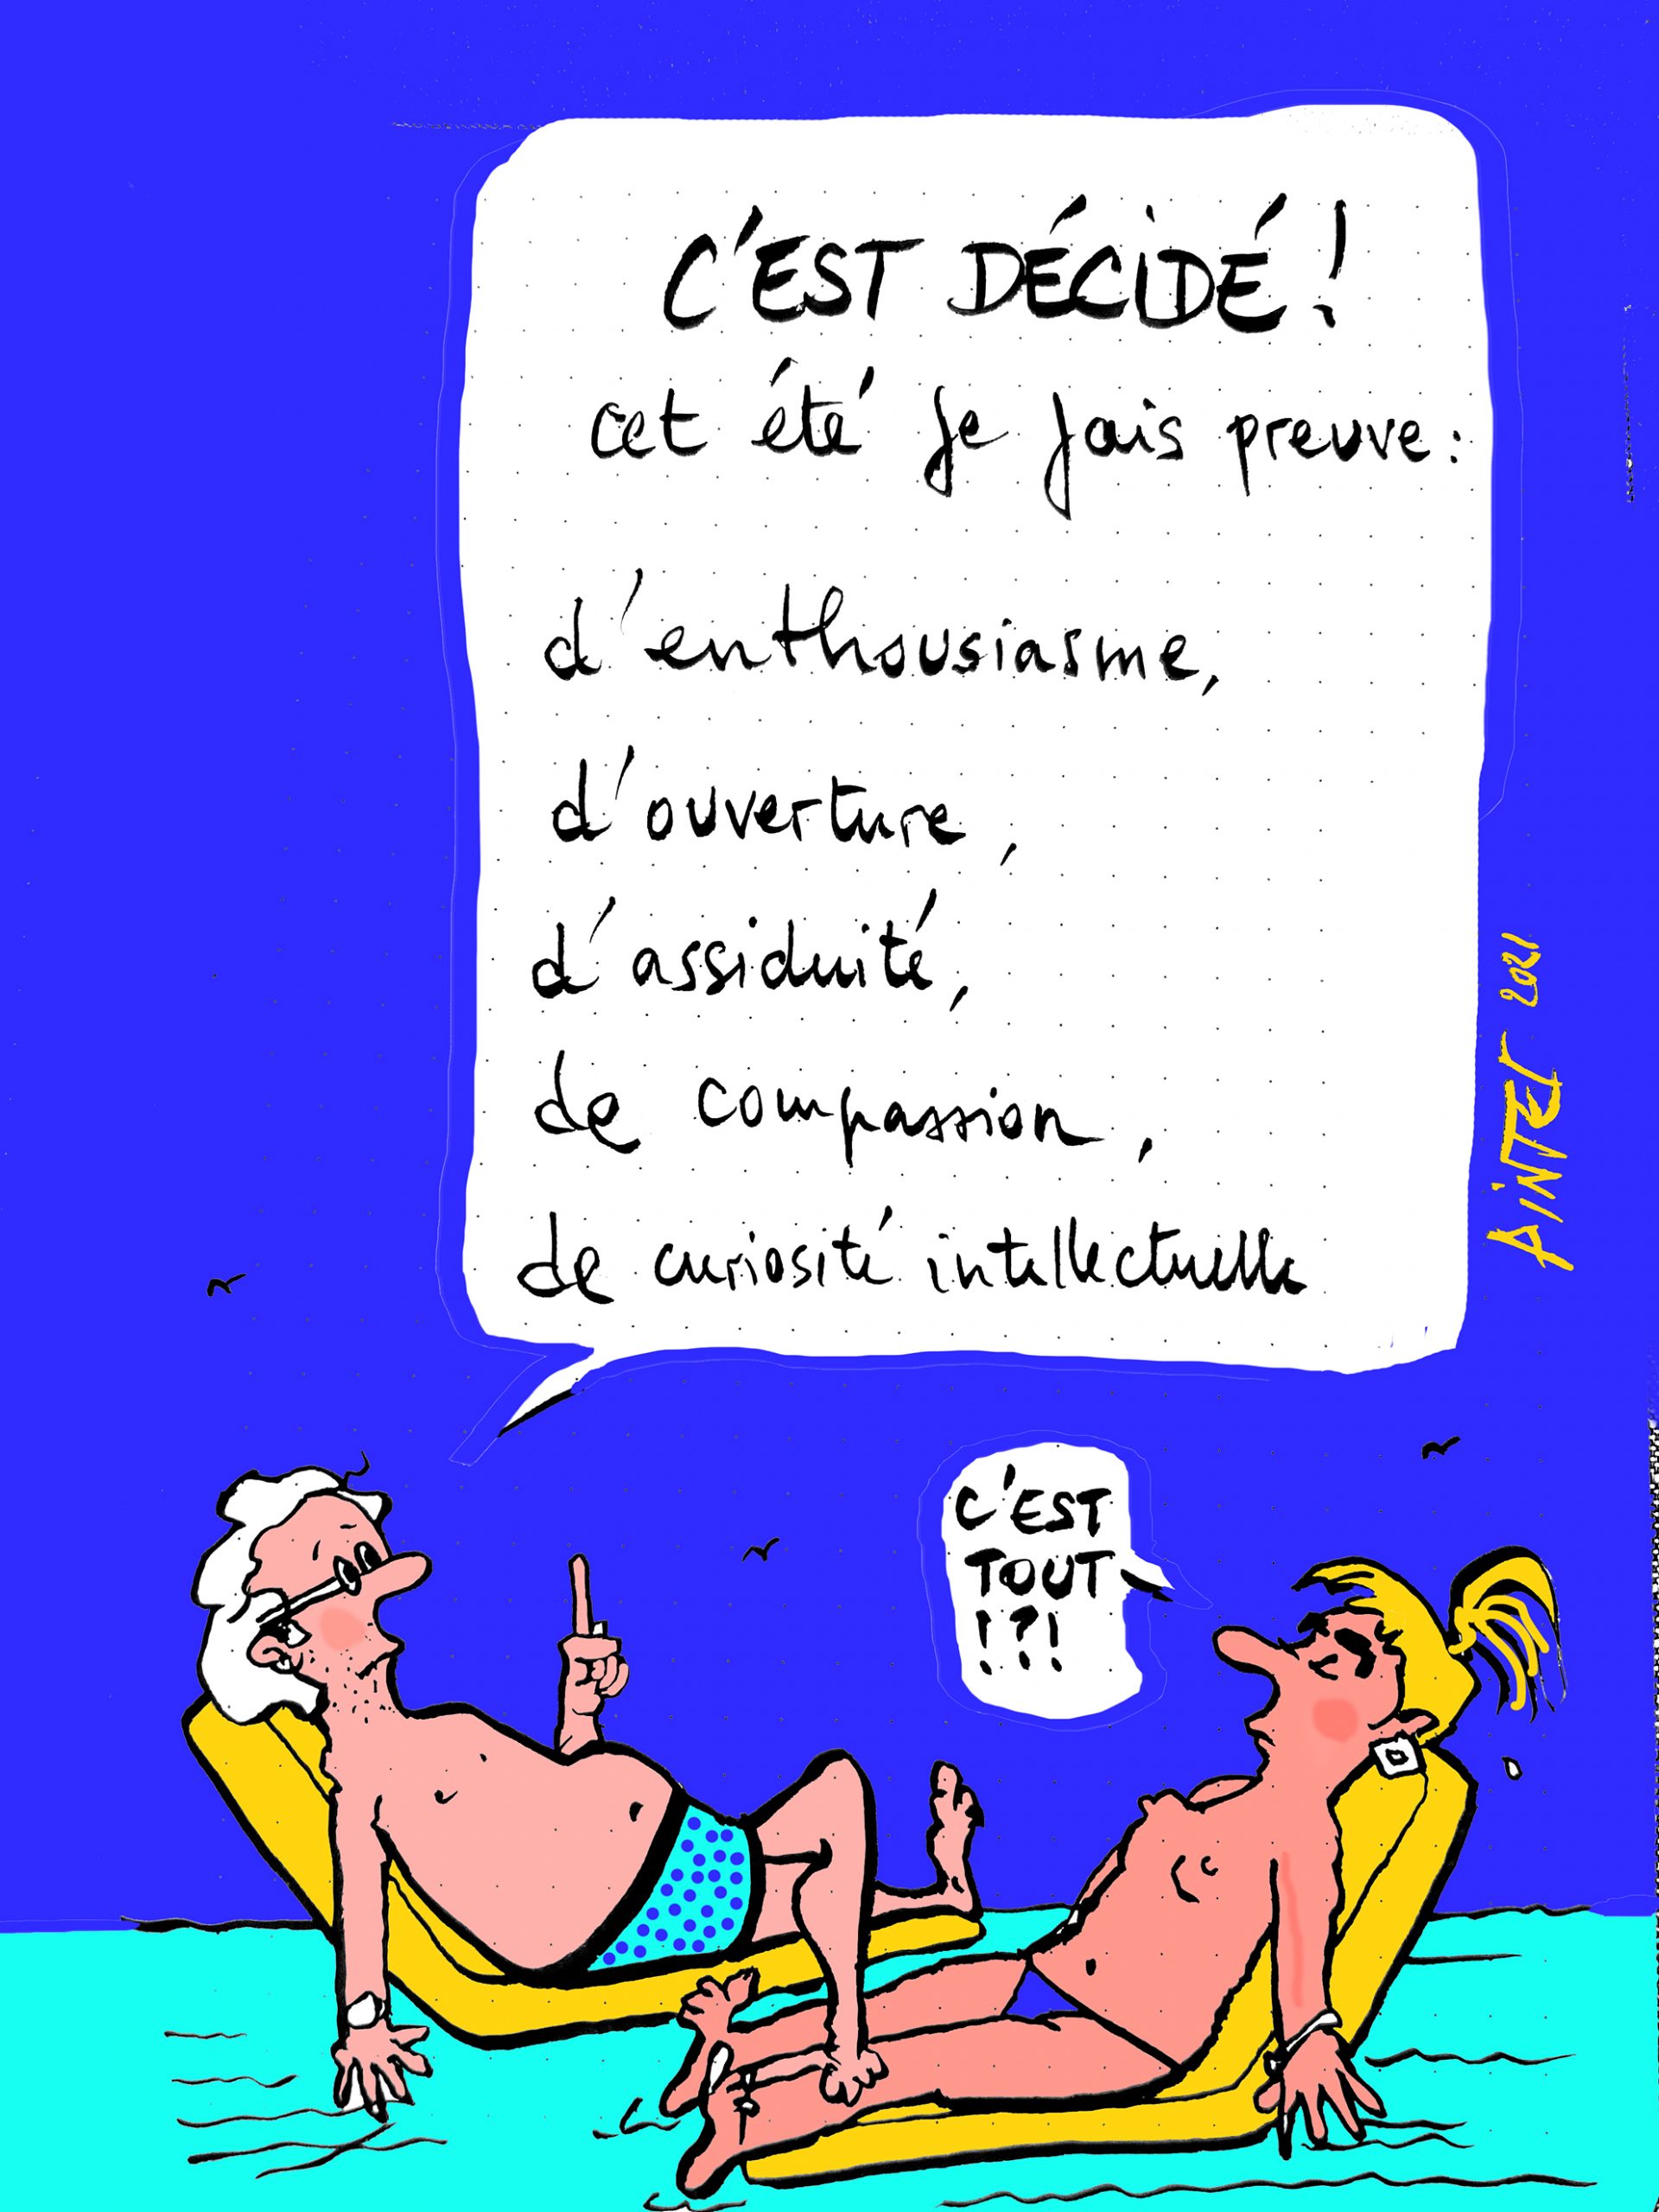 C'EST DÉCIDÉ!
cet été je fais preuve:
d'enthousiasme,
d'ouverture,
d'assiduité,
de compassion,
de curiosité intellectuelle
C'EST
TOUT
!?!
AiNTEr 2021